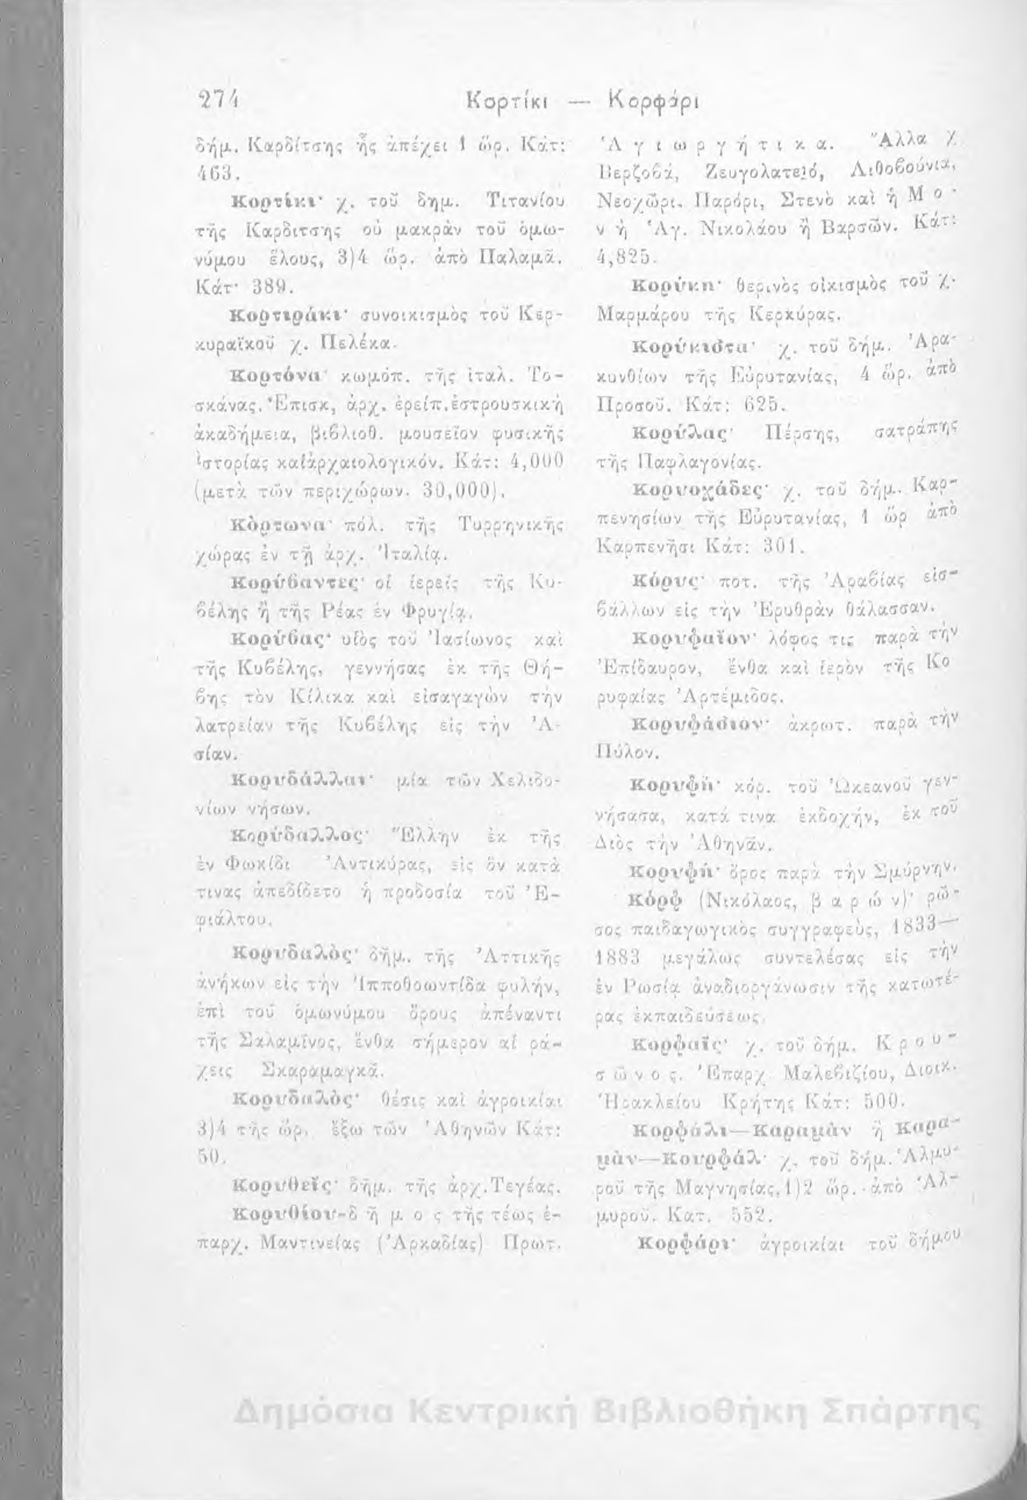 274 Κορτίκι — Κορφάρι
δήμ. Καρδίτσης ἧς ἀπέχει 1 ὥρ. Κάτ:
463.
Κορτίκι· χ. τοῦ δημ. Τιτανίου
τῆς Καρδιτσης οὐ μακρὰν τοῦ ὁμω-
νύμου ἕλους, 3)4 ὥρ. ἀπὸ Παλαμᾶ.
Κάτ· 389.
Κορτιράκι· συνοικισμὸς τοῦ Κερ-
κυραϊκοῦ χ. Πελέκα.
Κορτόνα· κωμόπ. τῆς ἰταλ. Το-
σκάνας. Ἐπισκ, ἀρχ. ἐρείπ. ἐστρουσκικὴ
ἀκαδήμεια, βιβλιοθ. μουσεῖον φυσικῆς
ἱστορίας καὶ ἀρχαιολογικόν. Κάτ: 4,000
(μετὰ τῶν περιχώρων. 30,000).
Κόρτωνα· πόλ. τῆς Τυρρηνικῆς
χώρας ἐν τῇ ἀρχ. Ἰταλίᾳ.
Κορύβαντες· οἱ ἱερεῖς τῆς Κυ-
βέλης ἢ τῆς Ρέας ἐν Φρυγίᾳ.
Κορύβας· υἱὸς τοῦ Ἰασίωνος καὶ
τῆς Κυβέλης, γεννήσας ἐκ τῆς Θή-
βης τὸν Κίλικα καὶ εἰσαγαγὼν τὴν
λατρείαν τῆς Κυβέλης εἰς τὴν Ἀ-
σίαν.
Κορυδάλλαι· μία τῶν Χελιδο-
νίων νήσων.
Κορύδαλλος· Ἕλλην ἐκ τῆς
ἐν Φωκίδι Ἀντικύρας, εἰς ὃν κατὰ
τινας ἀπεδίδετο ἡ προδοσία τοῦ Ἐ-
φιάλτου.
Κορυδαλὸς· δῆμ. τῆς Ἀττικῆς
ἀνήκων εἰς τὴν Ἱπποθοωντίδα φυλήν,
ἐπὶ τοῦ ὁμωνύμου ὄρους ἀπέναντι
τῆς Σαλαμῖνος, ἔνθα σήμερον αἱ ρά-
χεις Σκαραμαγκᾶ.
Κορυδαλὸς· θέσις καὶ ἀγροικίαι
3)4 τῆς ὥρ. ἔξω τῶν Ἀθηνῶν Κάτ:
50.
Κορυθεῖς· δῆμ. τῆς ἀρχ. Τεγέας.
Κορυθίου-δῆμος τῆς τέως ἐ-
παρχ. Μαντινείας (Ἀρκαδίας) Πρωτ.
Ἁγιωργήτικα. Ἄλλα χ
Βερζοβά, Ζευγολατειό, Λιθοβούνια,
Νεοχῶρι. Παρόρι, Στενὸ καὶ ἡ Μο-
νὴ Ἁγ. Νικολάου ἢ Βαρσῶν. Κάτ:
4,825.
Κορύκη· θερινὸς οἰκισμὸς τοῦ χ.
Μαρμάρου τῆς Κερκύρας.
Κορύκιστα· χ. τοῦ δήμ. Ἀρα-
κυνθίων τῆς Εὐρυτανίας, 4 ὥρ. ἀπὸ
Προσοῦ. Κάτ: 625.
Κορύλας· Πέρσης, σατράπης
τῆς Παφλαγονίας.
Κορυοχάδες· χ. τοῦ δήμ. Καρ-
πενησίων τῆς Εὐρυτανίας, 1 ὥρ ἀπὸ
Καρπενῆσι Κάτ: 301.
Κόρυς· ποτ. τῆς Ἀραβίας εἰσ-
βάλλων εἰς τὴν Ἐρυθρὰν θάλασσαν.
Κορυφαῖον· λόφος τις παρὰ τὴν
Ἐπίδαυρον, ἔνθα καὶ ἱερὸν τῆς Κο
ρυφαίας Ἀρτέμιδος.
Κορυφάσιον· ἀκρωτ. παρὰ τὴν
Πύλον.
Κορυφὴ· κόρ. τοῦ Ὠκεανοῦ γεν-
νήσασα, κατά τινα ἐκδοχήν, ἐκ τοῦ
Διὸς τὴν Ἀθηνᾶν.
Κορυφὴ· ὄρος παρὰ τὴν Σμύρνην.
Κόρφ (Νικόλαος, βαρών)· ρῶ-
σος παιδαγωγικὸς συγγραφεύς, 1833—
1883 μεγάλως συντελέσας εἰς τὴν
ἐν Ρωσίᾳ ἀναδιοργάνωσιν τῆς κατωτέ-
ρας ἐκπαιδεύσεως.
Κορφαῖς· χ. τοῦ δήμ. Κρου-
σῶνος. Ἐπαρχ. Μαλεβιζίου, Διοικ.
Ἡρακλείου Κρήτης Κάτ: 500.
Κορφάλι—Καραμὰν ἢ Καρα-
μὰν—Κουρφάλ· χ. τοῦ δήμ. Ἁλμυ-
ροῦ τῆς Μαγνησίας, 1)2 ὥρ. ἀπὸ Ἁλ-
μυροῦ. Κατ. 552.
Κορφάρι· ἀγροικίαι τοῦ δήμου
Δημόσια Κεντρική Βιβλιοθήκη Σπάρτης